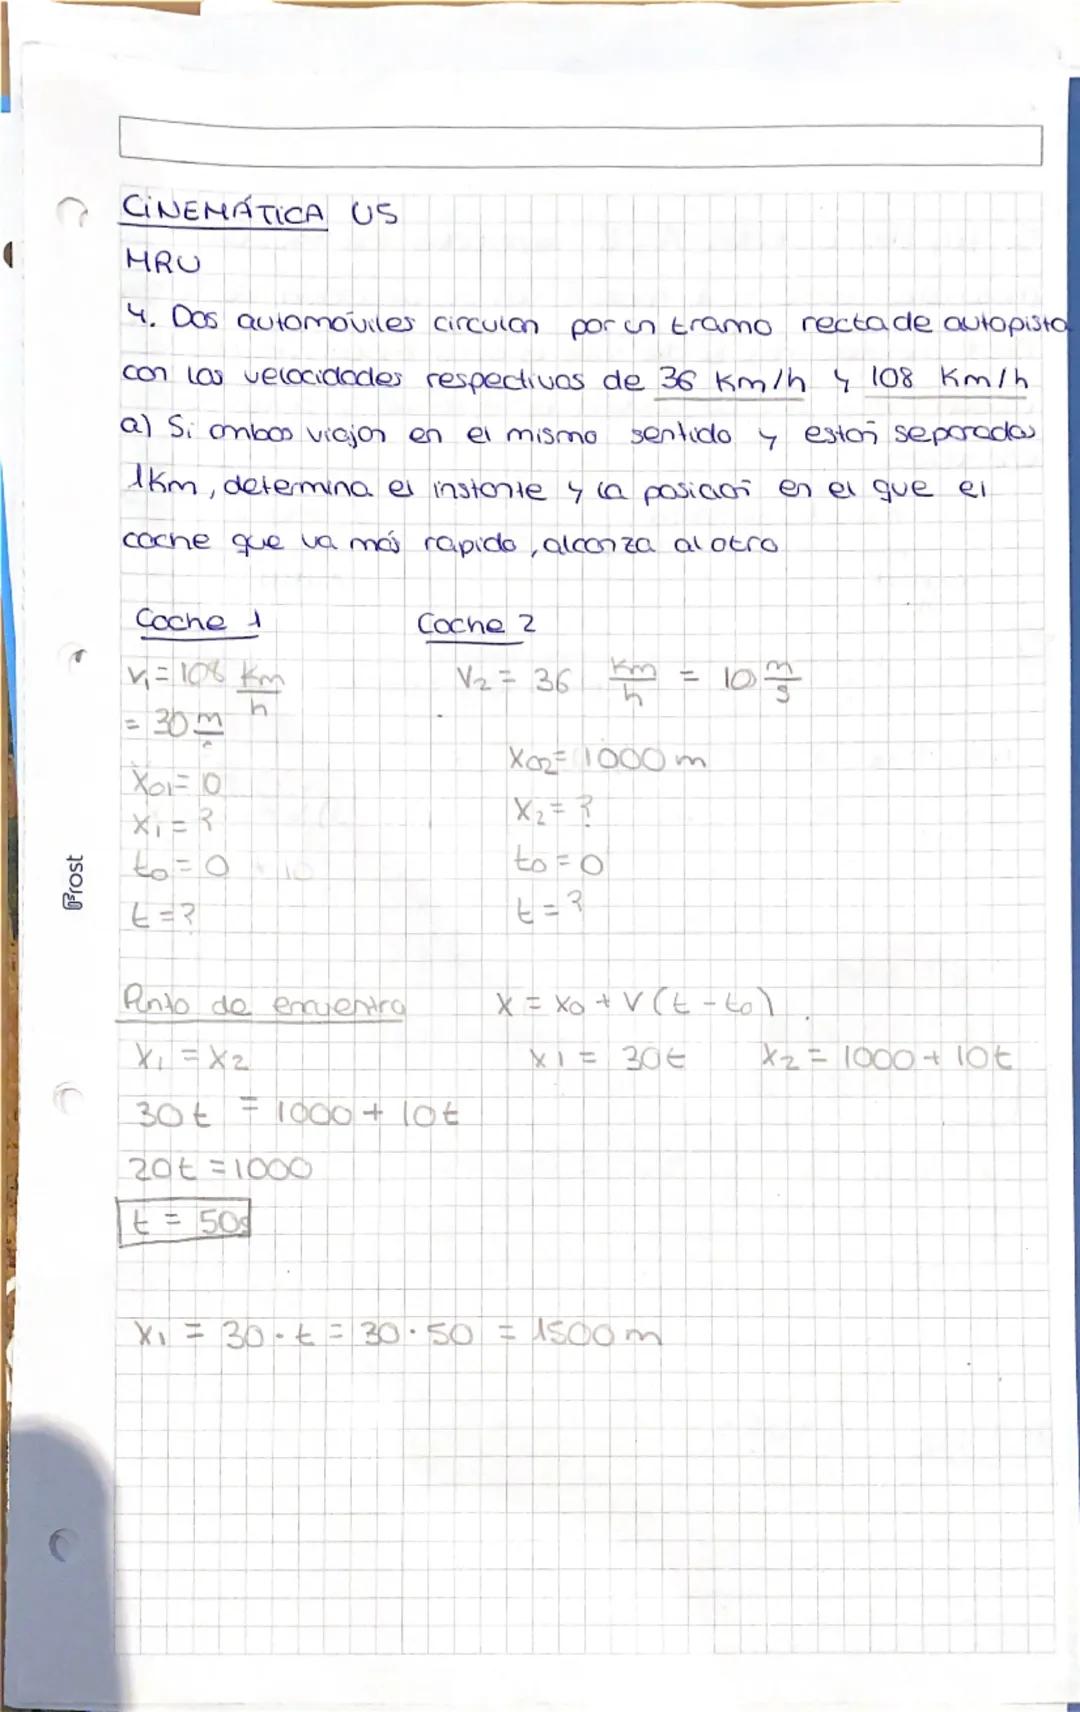 CINEMÁTICA U5
MRU
4. Dos automóviles circulan por un tramo recta de autopista
con las velocidades respectivas de 36 Km/h y 108 Km/h
a) Si ambos viajan en el mismo sentido y están separados
1Km, determina el instante y la posición en el que el
coche que va más rápido, alcanza al otro
Coche 1 Coche 2
V₁ = 108 Km/h V₂ = 36 Km/h = 10 m/s
= 30 m/s
X₀₁ = 0 X₀₂ = 1000 m
X₁ = ? X₂ = ?
t₀ = 0 t₀ = 0
t = ? t = ?
Punto de encuentro X = X₀ + V (t - t₀)
X₁ = X₂ X1 = 30t X₂ = 1000 + 10t
30t = 1000 + 10t
20t = 1000
t = 50s
X₁ = 30 · t = 30 · 50 = 1500 m
Frost